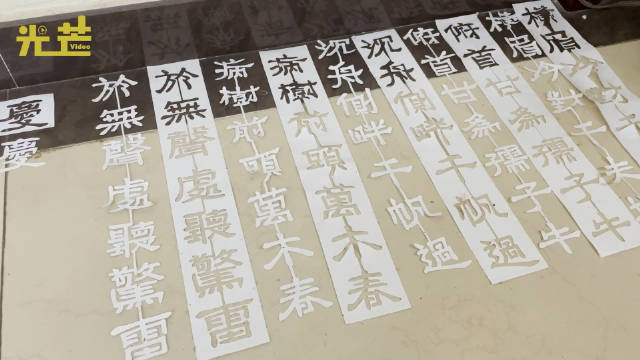 光芒
Video
橫眉冷對千夫
橫眉冷對千夫
俯首甘爲孺子牛
俯首甘爲孺子牛
沉舟側畔千帆過
沉舟側畔千帆過
病樹前頭萬木春
病樹前頭萬木春
於無聲處聽驚雷
於無聲處聽驚雷
慶
慶